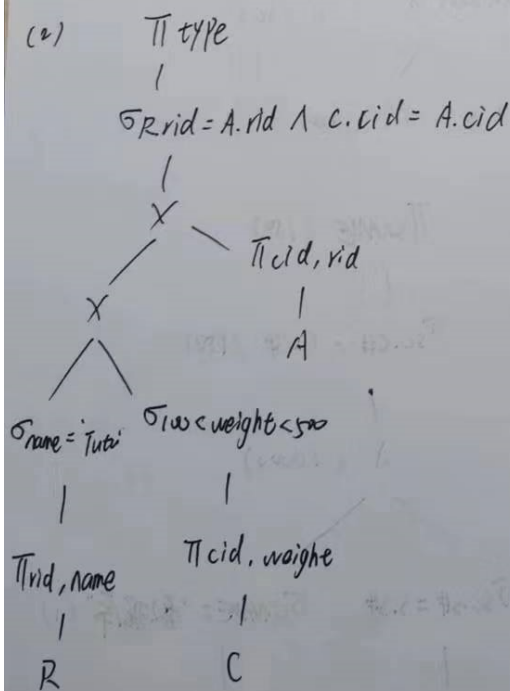 (2) Π type
σ R.rid = A.rid ∧ C.cid = A.cid
X
Π cid, rid
X
A
σ name = 'Tutu' σ 100 < weight < 500
Π rid, name Π cid, weighe
R C